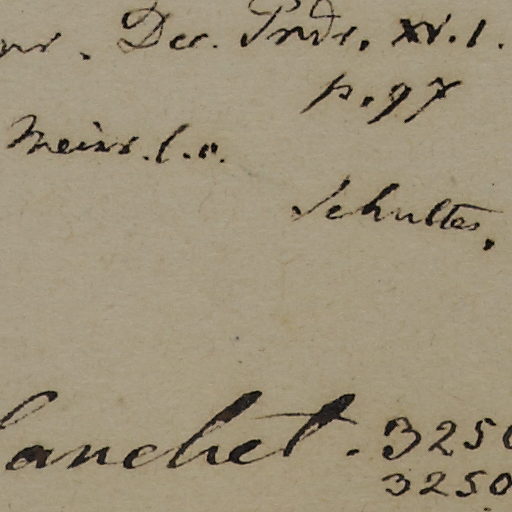 Dec. Prdr. XV. 1.
p. 97
Meisn. l. c.
Schultes,
lanchet. 3250
3250